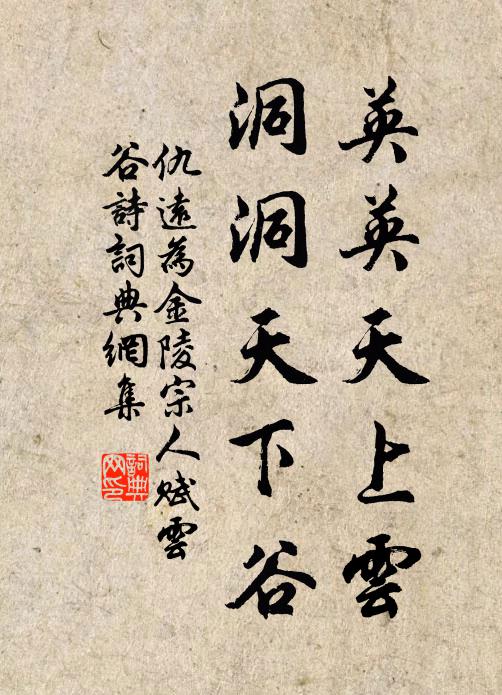 英英天上雲
洞洞天下谷
仇遠為金陵宗人賦雲
谷詩詞典網集
詞典
网印